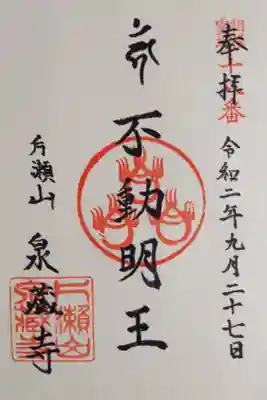 奉拝
令和二年九月二十七日
不動明王
片瀬山
泉蔵寺